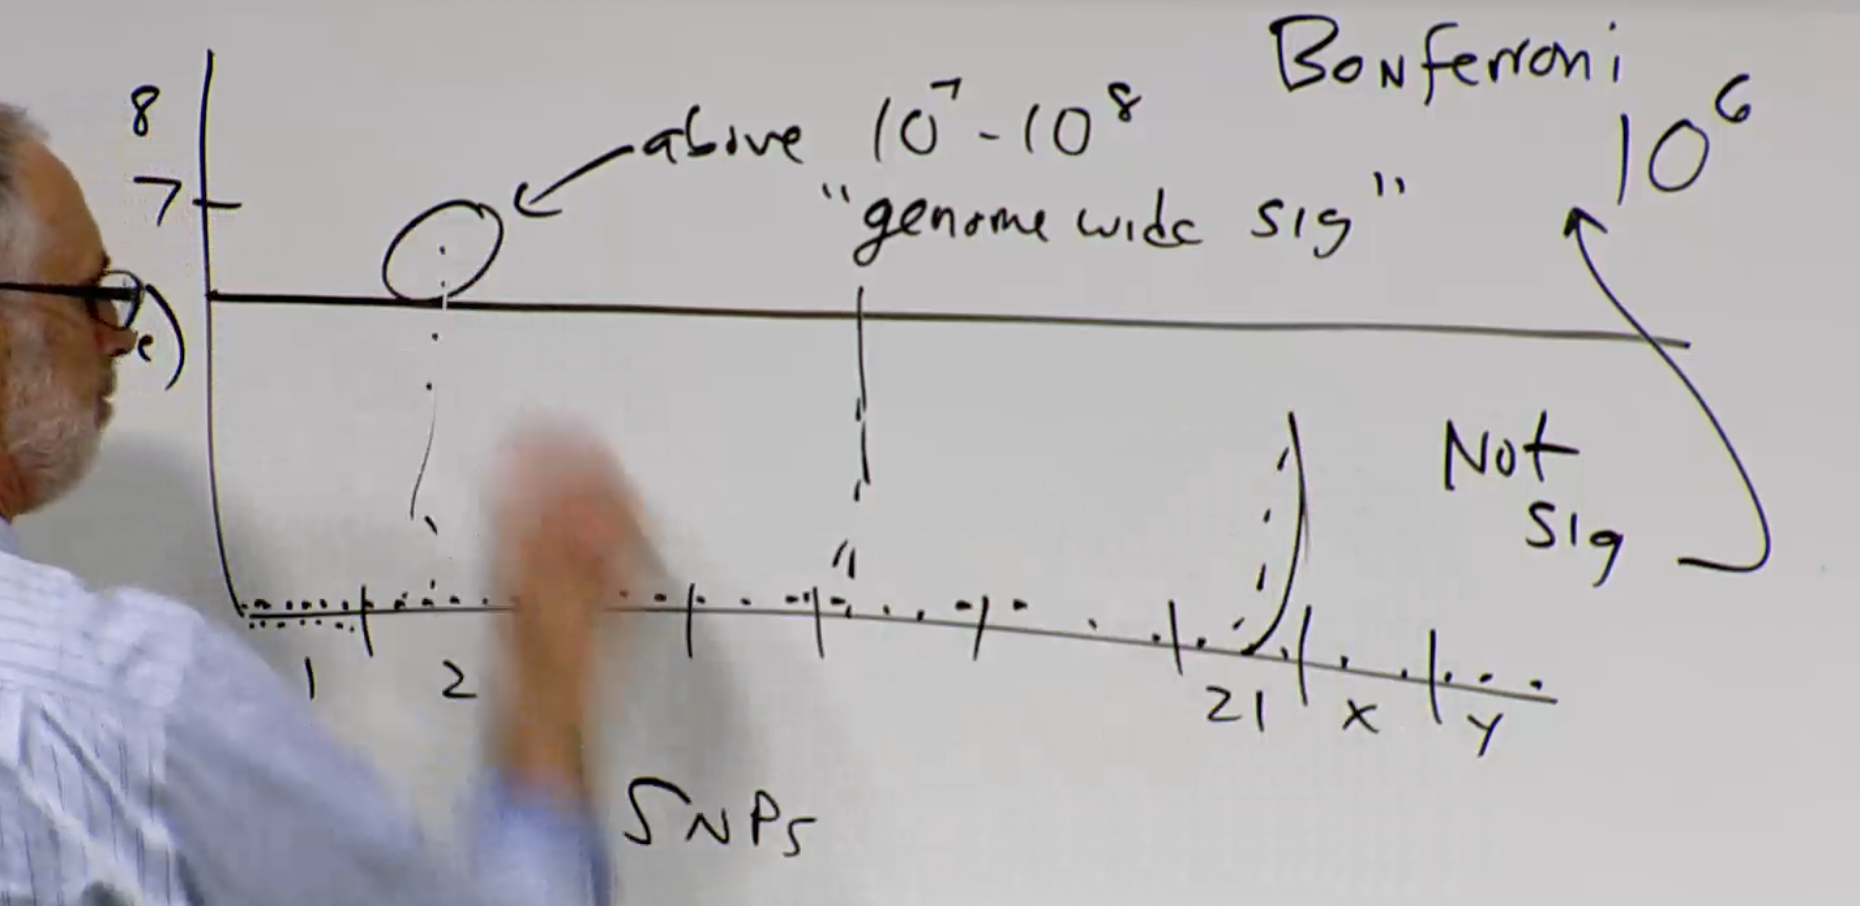 Bonferroni
10⁶
8
above 10⁷-10⁸
7
"genome wide sig"
e)
Not
Sig
1 2 21 X Y
SNPs